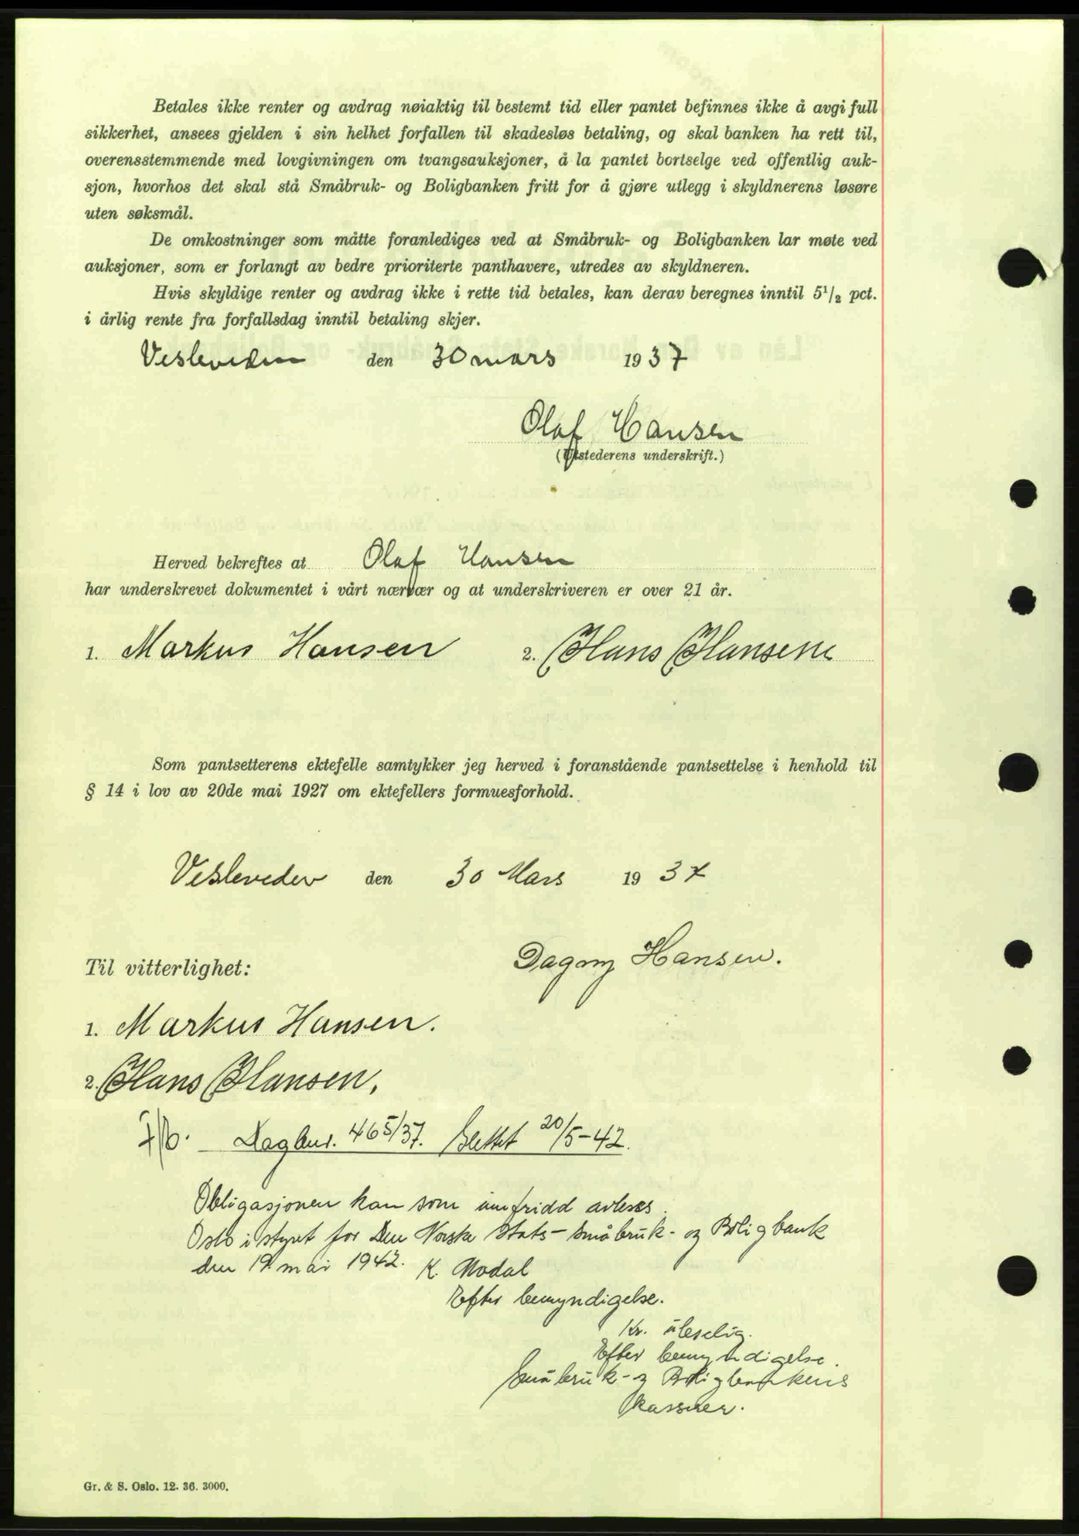 Betales ikke renter og avdrag nøiaktig til bestemt tid eller pantet befinnes ikke å avgi full
sikkerhet, ansees gjelden i sin helhet forfallen til skadesløs betaling, og skal banken ha rett til,
overensstemmende med lovgivningen om tvangsauksjoner, å la pantet bortselge ved offentlig auk-
sjon, hvorhos det skal stå Småbruk- og Boligbanken fritt for å gjøre utlegg i skyldnerens løsøre
uten søksmål.
De omkostninger som måtte foranlediges ved at Småbruk- og Boligbanken lar møte ved
auksjoner, som er forlangt av bedre prioriterte panthavere, utredes av skyldneren.
Hvis skyldige renter og avdrag ikke i rette tid betales, kan derav beregnes inntil 5 1/2 pct.
i årlig rente fra forfallsdag inntil betaling skjer.
den 30 mars 1937
Olaf Hansen
(Utstederens underskrift.)
Herved bekreftes at Olaf Hansen
har underskrevet dokumentet i vårt nærvær og at underskriveren er over 21 år.
1. Markus Hansen 2. Hans Hansen
Som pantsetterens ektefelle samtykker jeg herved i foranstående pantsettelse i henhold til
§ 14 i lov av 20de mai 1927 om ektefellers formuesforhold.
den 30 Mars 1937
Dagny Hansen.
Til vitterlighet:
1. Markus Hansen.
2. Hans Hansen,
Dagbnr. 465/37. Slettet 20/5-42.
Obligasjonen kan som innfridd avleses.
Oslo i styret for Den Norske Stats- Småbruk- og Boligbank
den 19. mai 1942. K. Modal
Efter bemyndigelse.
Kr. uleselig.
Efter bemyndigelse.
Småbruk- og Boligbankens
kasserer.
Gr. & S. Oslo. 12. 36. 3000.